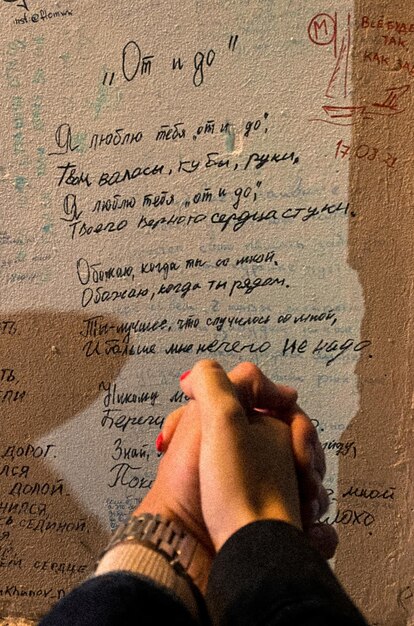 inst:@flomwn
„От и до"
Я люблю тебя „от и до",
Твои волосы, губы, руки,
Я люблю тебя „от и до",
Твоего верного сердца стуки.
Обожаю, когда ты со мной.
Обожаю, когда ты рядом.
Ты-лучшее, что случилось со мной,
И больше мне нечего не надо.
Никому
Берегу
Знай,
Пока
мной
М
ВСЁ БУДЕ
ТАК
КАК ЗА
17.03.21
ТЬ
ТЬ,
ЛИ
ДОРОГ.
ЛСЯ
ДОЛОЙ.
СЕДИНОЙ.
СЕРДЦЕ